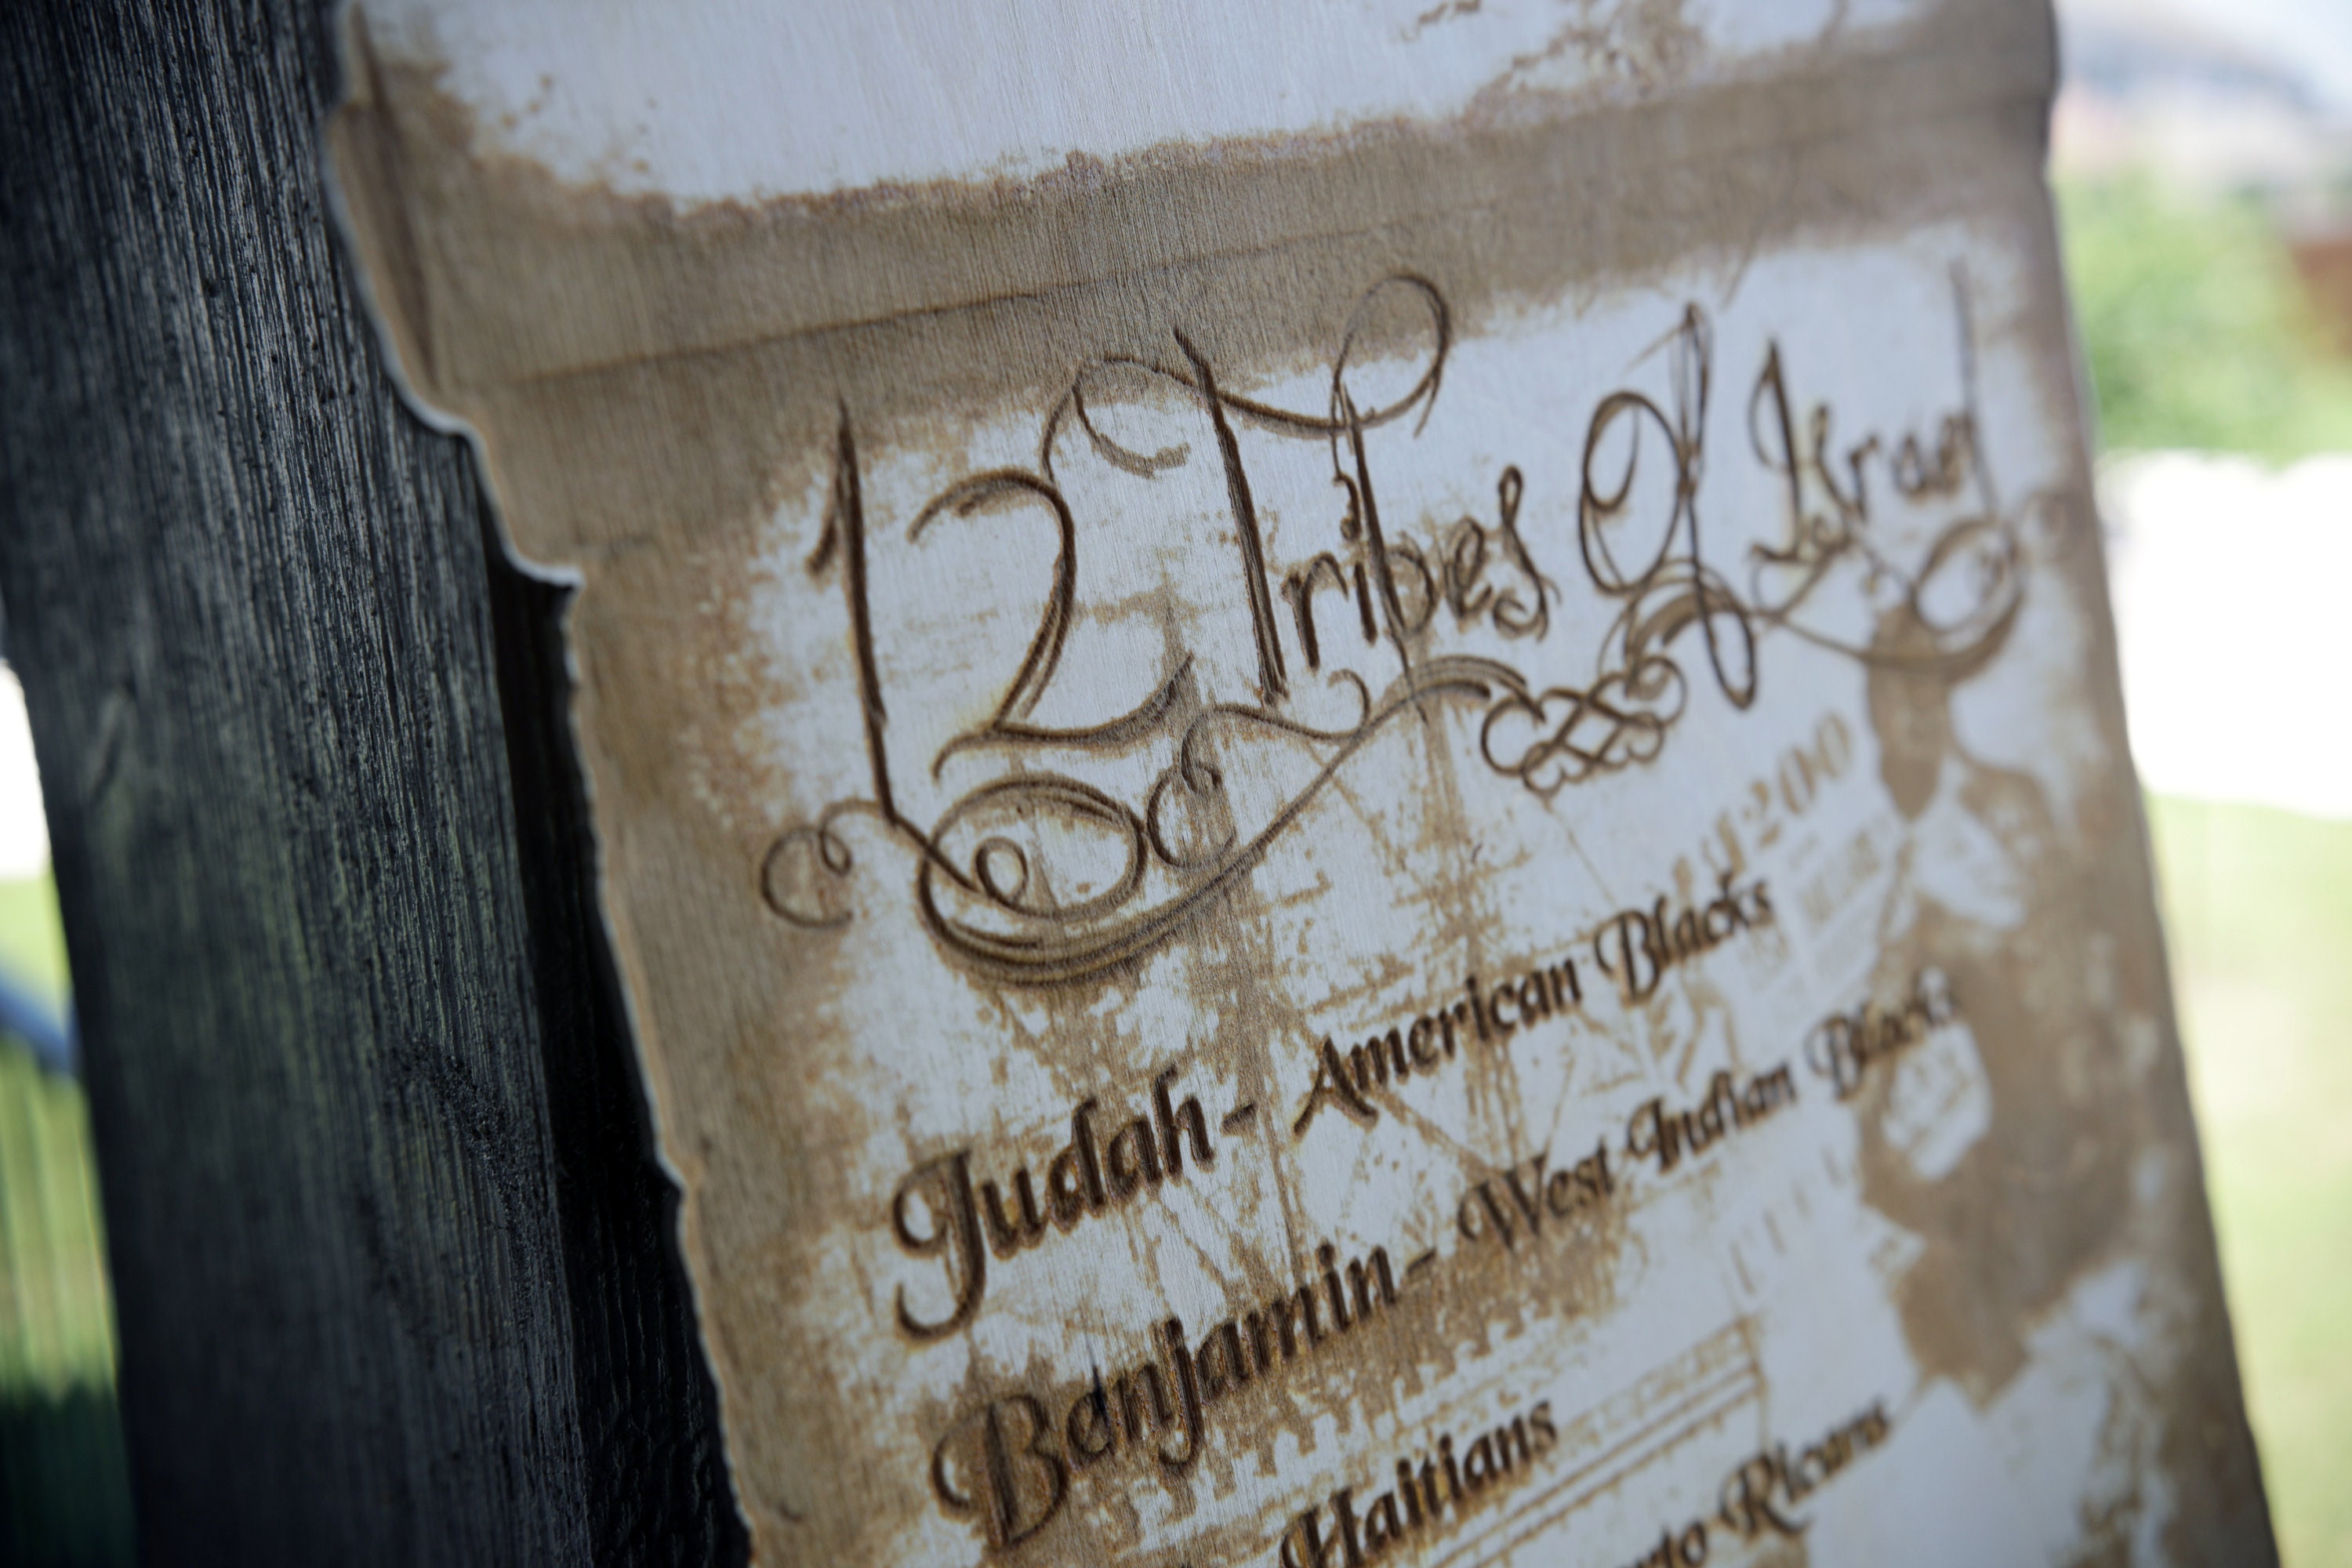 12 Tribes Of Israel
1200
Judah - American Blacks
Benjamin - West Indian Blacks
Haitians
Ricans